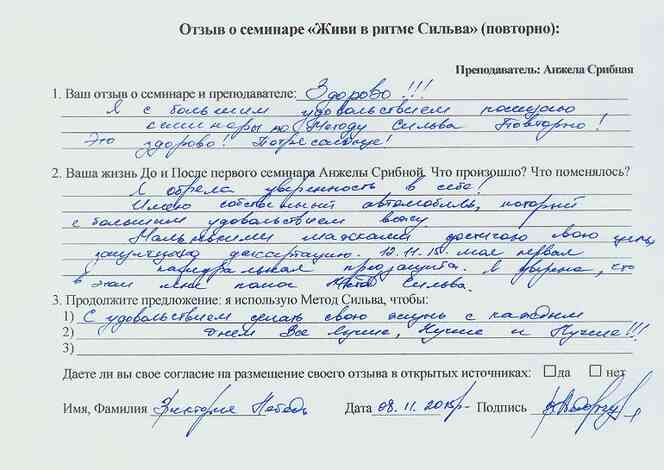 Отзыв о семинаре «Живи в ритме Сильва» (повторно):
Преподаватель: Анжела Срибная
1. Ваш отзыв о семинаре и преподавателе: Здорово!!!
Я с большим удовольствием посещаю
семинары по Методу Сильва Повторно!
Это здорово!! Потрясающе!
2. Ваша жизнь До и После первого семинара Анжелы Срибной. Что произошло? Что поменялось?
Я обрела уверенность в себе!
Имею собственный автомобиль, который
с большим удовольствием вожу.
Маленькими шажками достигаю свою цель,
диссертацию. 12.11.15 моя первая
кафедральная предзащита. Я уверена, что
в этом мне помог Метод Сильва.
3. Продолжите предложение: я использую Метод Сильва, чтобы:
1) С удовольствием делать свою жизнь с каждым
2) Днем Все Лучше, Лучше и Лучше!!!
3)
Даете ли вы свое согласие на размещение своего отзыва в открытых источниках: да нет
Имя, Фамилия Виктория Лебедь Дата 08.11.2015г. Подпись